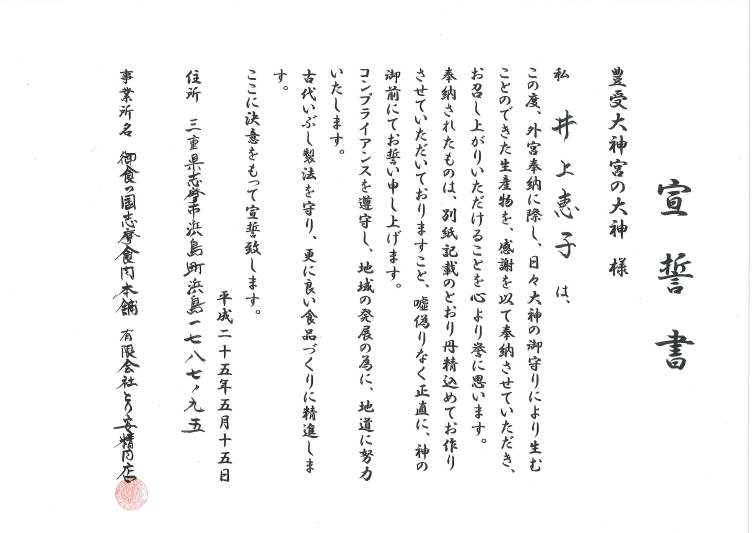 宣誓書
豊受大神宮の大神 様
私 井上恵子 は、
この度、外宮奉納に際し、日々大神の御守りにより生む
ことのできた生産物を、感謝を以て奉納させていただき、
お召し上がりいただけることを心より誉に思います。
奉納されたものは、別紙記載のとおり丹精込めてお作り
させていただいておりますこと、嘘偽りなく正直に、神の
御前にてお誓い申し上げます。
コンプライアンスを遵守し、地域の発展の為に、地道に努力
いたします。
古代いぶし製法を守り、更に良い食品づくりに精進しま
す。
ここに決意をもって宣誓致します。
平成二十五年五月十五日
住所 三重県志摩市浜島町浜島一七八七ノ九五
事業所名 御食つ国志摩食肉本舗 有限会社とり安精肉店